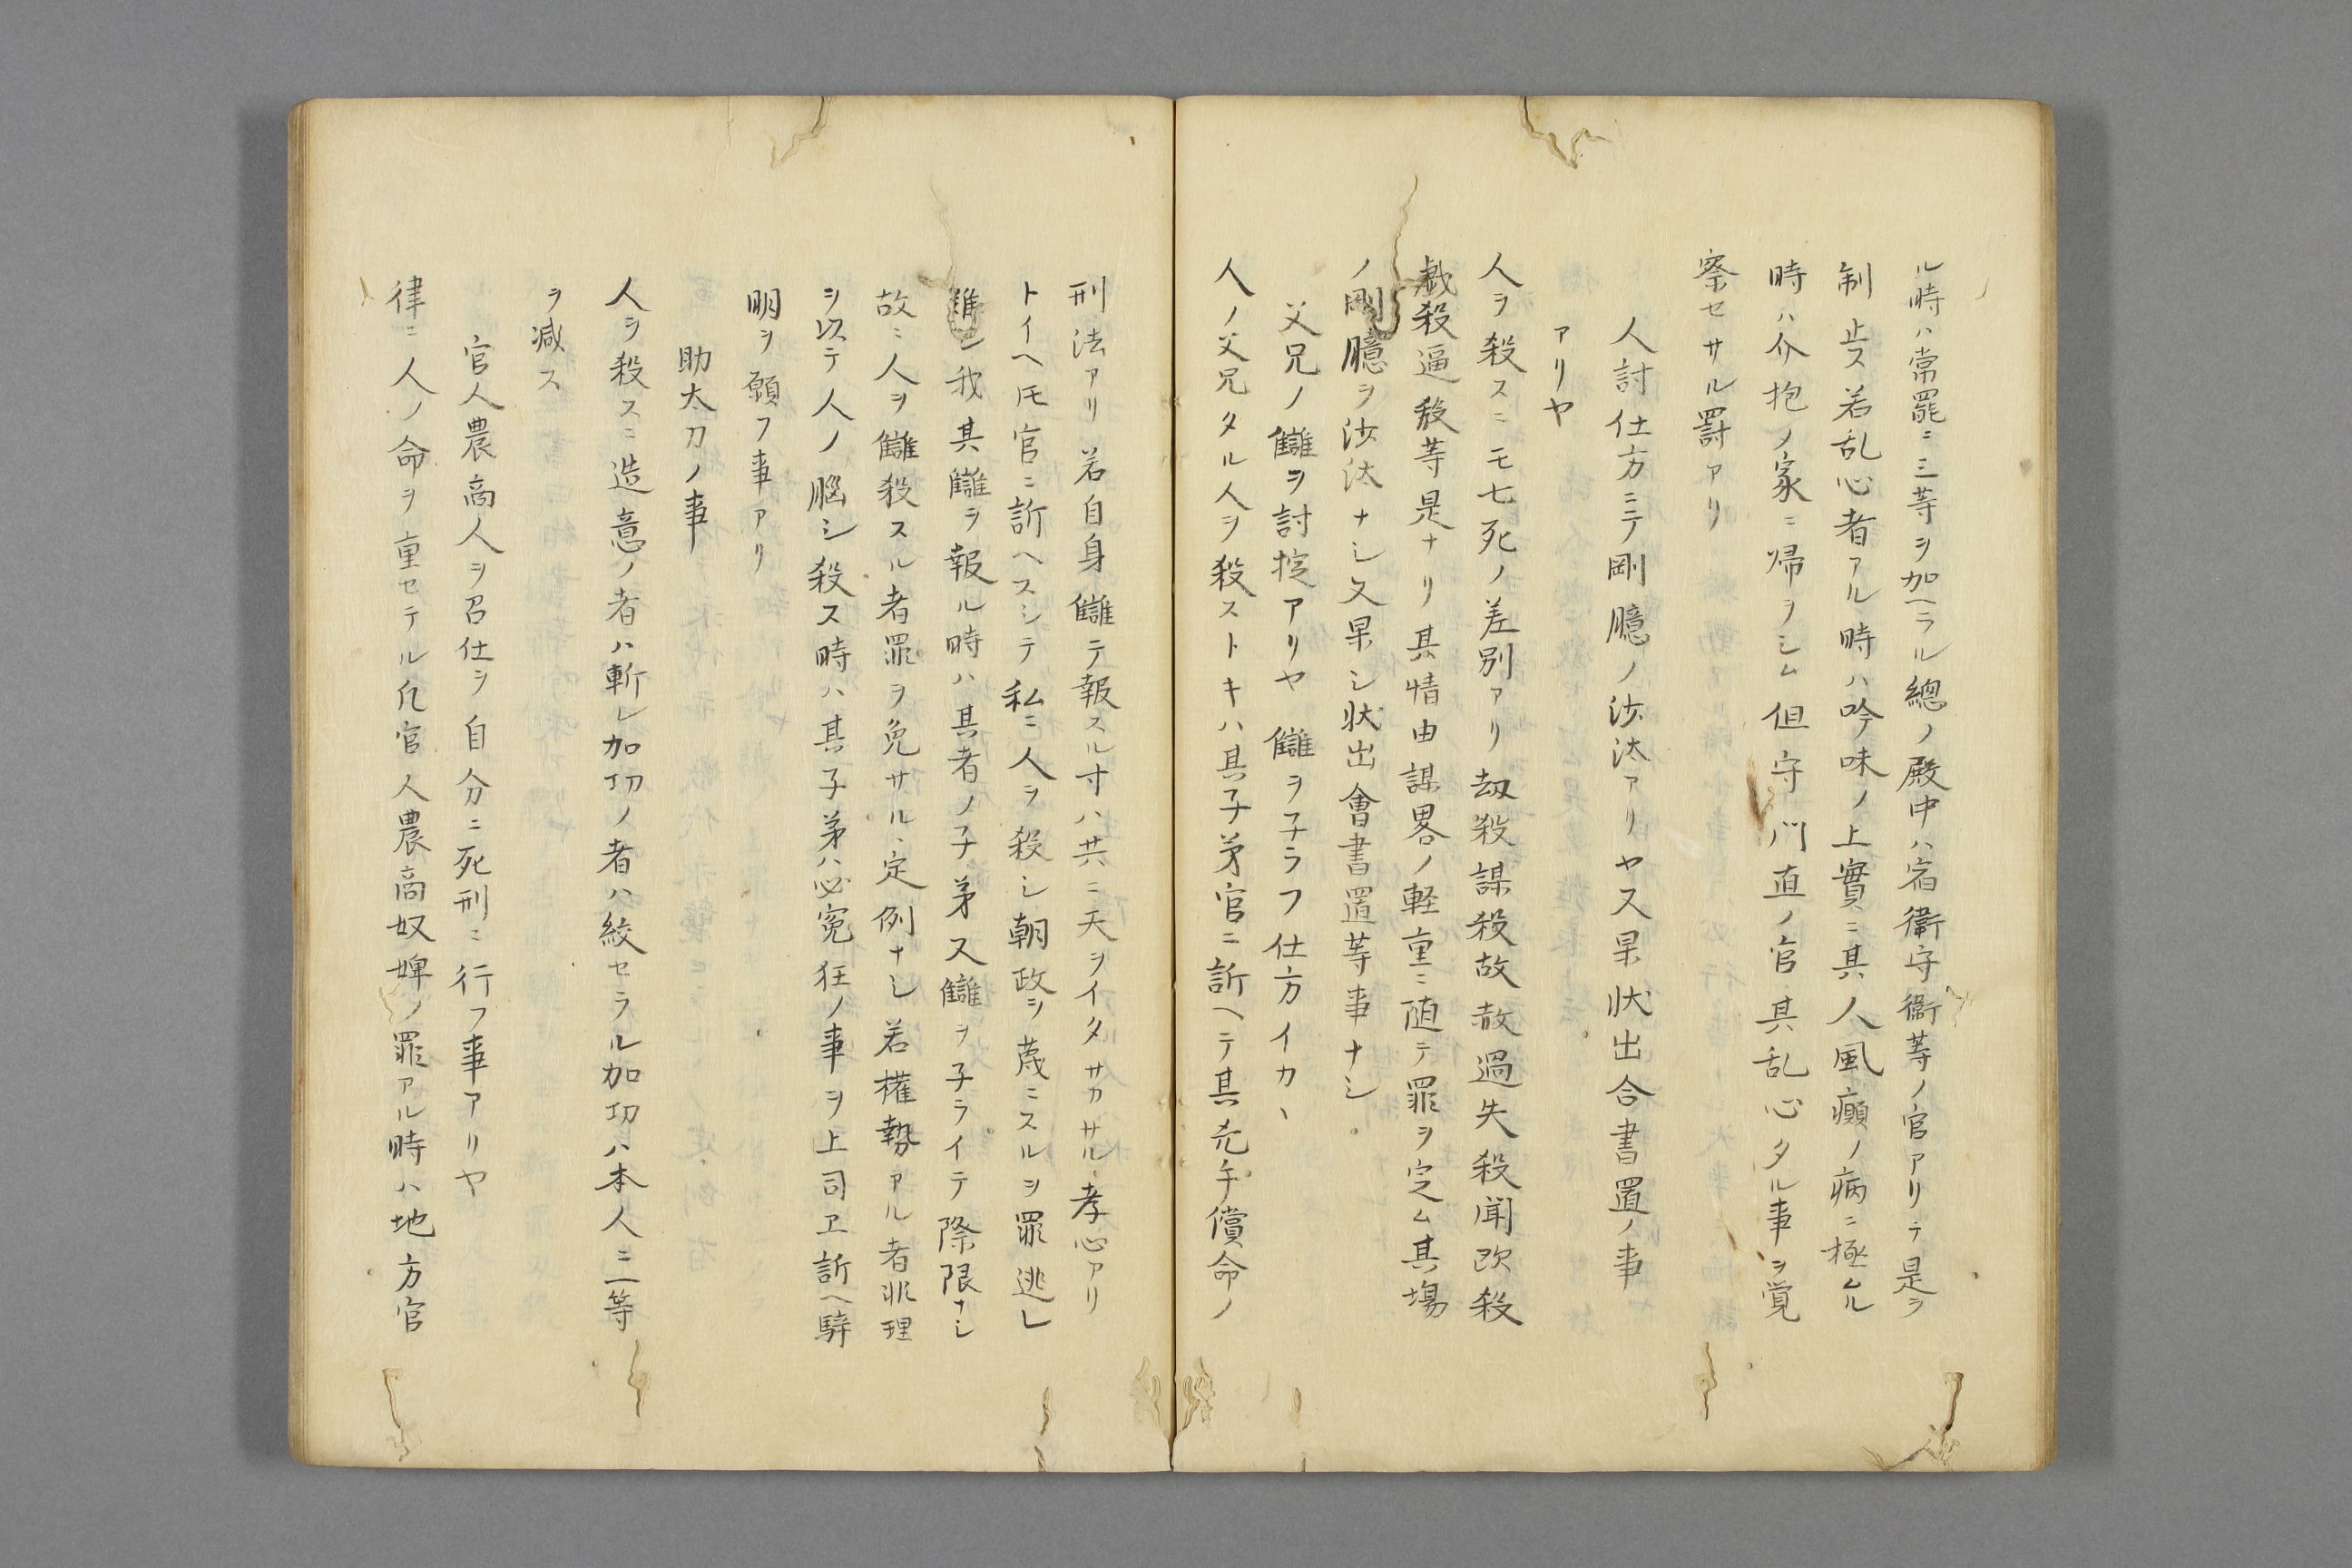 ル時ハ常罷ニ三等ヲ加ヘラル總ノ殿中ハ宿衛守衞等ノ官アリテ是ヲ
制止ス若乱心者アル時ハ吟味ノ上實ニ其人風癲ノ病ニ極ムル
時ハ介抱ノ家ニ帰ヲシム但守門直ノ官其乱心タル事ヲ覚
察セサル罰アリ
人討仕方ニテ剛臆ノ汰汰アリヤ又果状出合書置ノ事
アリヤ
人ヲ殺スニモ七死ノ差別アリ劫殺謀殺故殺過失殺闘欧殺
戯殺逼殺等是ナリ其情由謀畧ノ軽重ニ随テ罪ヲ定ム其場
ノ剛臆ヲ沙汰ナシ又果シ状出會書置等事ナシ
父兄ノ讎ヲ討掟アリヤ讎ヲ子ラフ仕方イカヽ
人ノ父兄タル人ヲ殺ストキハ其子弟官ニ訴ヘテ其兇手償命ノ
刑法アリ若自身讎テ報スル寸ハ共ニ天ヲイタサカサル孝心アリ
トイヘ𪜈官ニ訴ヘスシテ私ニ人ヲ殺シ朝政ヲ蔑ニスルヲ罪逃レ
難シ我其讎ヲ報ル時ハ其者ノ子弟又讎ヲ子ライテ際限ナシ
故ニ人ヲ讎殺スル者罪ヲ免サルヽ定例ナシ若權勢アル者非理
ヲ以テ人ノ腦シ殺ス時ハ其子弟ハ必冤狂ノ事ヲ上司ヱ訴ヘ辯
明ヲ願フ事アリ
助太刀ノ事
人ヲ殺スニ造意ノ者ハ斬レ加功ノ者ハ絞セラル加功ハ本人ニ一等
ヲ減ス
官人農商人ヲ召仕ヲ自分ニ死刑ニ行フ事アリヤ
律ニ人ノ命ヲ重セテル凢官人農商奴婢ノ罪アル時ハ地方官